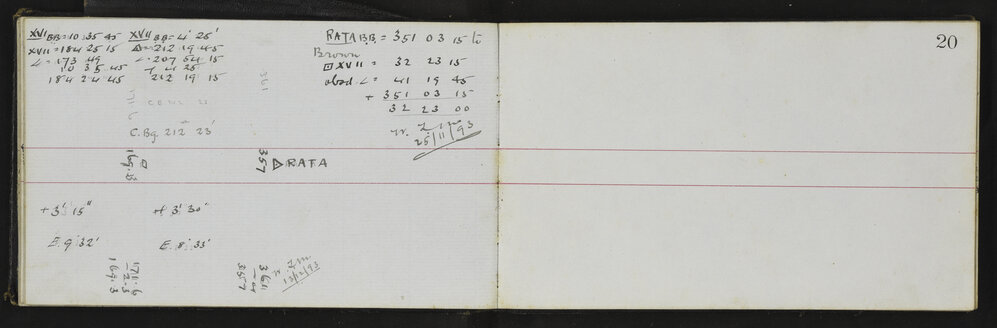 XVI BB = 10 35 45
XVII = 184 25 15
∠ = 173 49
10 35 45
184 24 45
XVII BB = 4° 25'
△ = 212 19 45
∠ · 207 54 15
+ 4 25
212 19 15
C. Bg. 212° 23'
361
RATA BB = 351 03 15 to
Brown
⊡ XVII = 32 23 15
obsd. ∠ = 41 19 45
+ 351 03 15
32 23 00
25/11/93
20
169.3
357
△ RATA
+ 3' 15"
+ 3' 30"
E. 9' 32'
E. 8' 33'
171.6
-2.3
169.3
361
-4
357
13/12/93